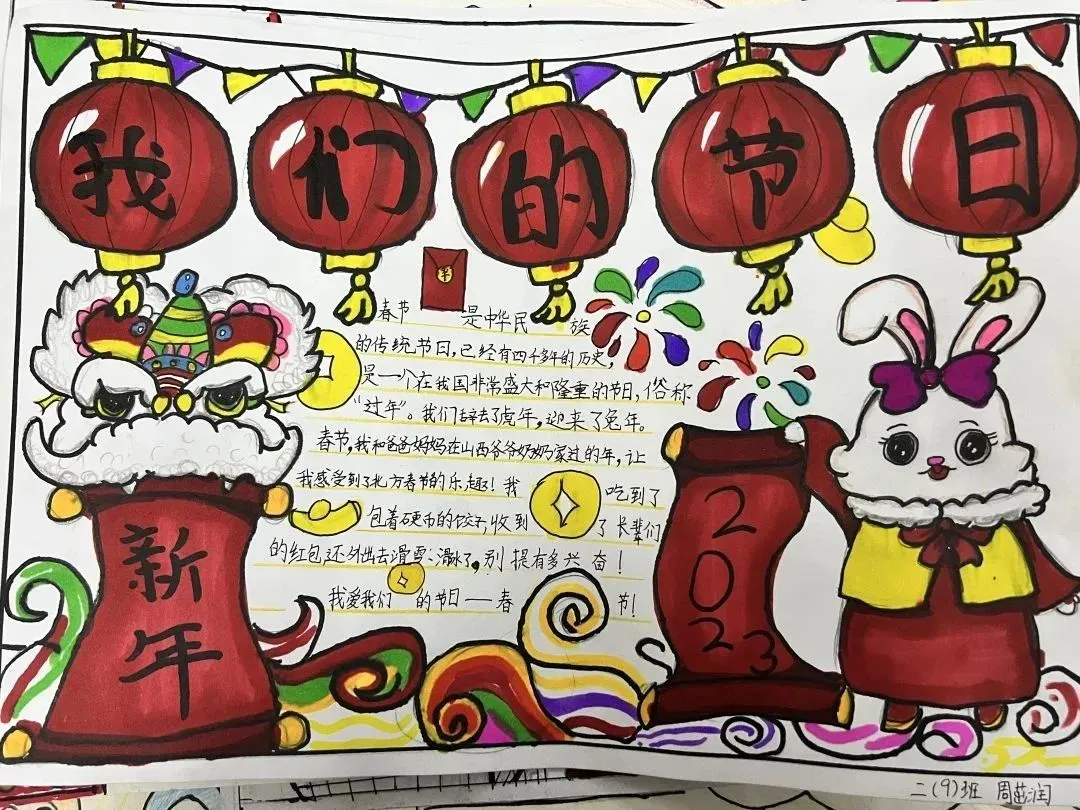 我们的节日
春节是中华民族
的传统节日,已经有四千多年的历史,
是一个在我国非常盛大和隆重的节日,俗称
“过年”。我们辞去了虎年,迎来了兔年。
春节,我和爸爸妈妈在山西爷爷奶奶家过的年,让
我感受到了北方春节的乐趣!我吃到了
包着硬币的饺子,收到了长辈们
的红包,还外出去滑雪、滑冰了,别提有多兴奋!
我爱我们的节日——春节!
新年
2023
二(9)班 周茈润